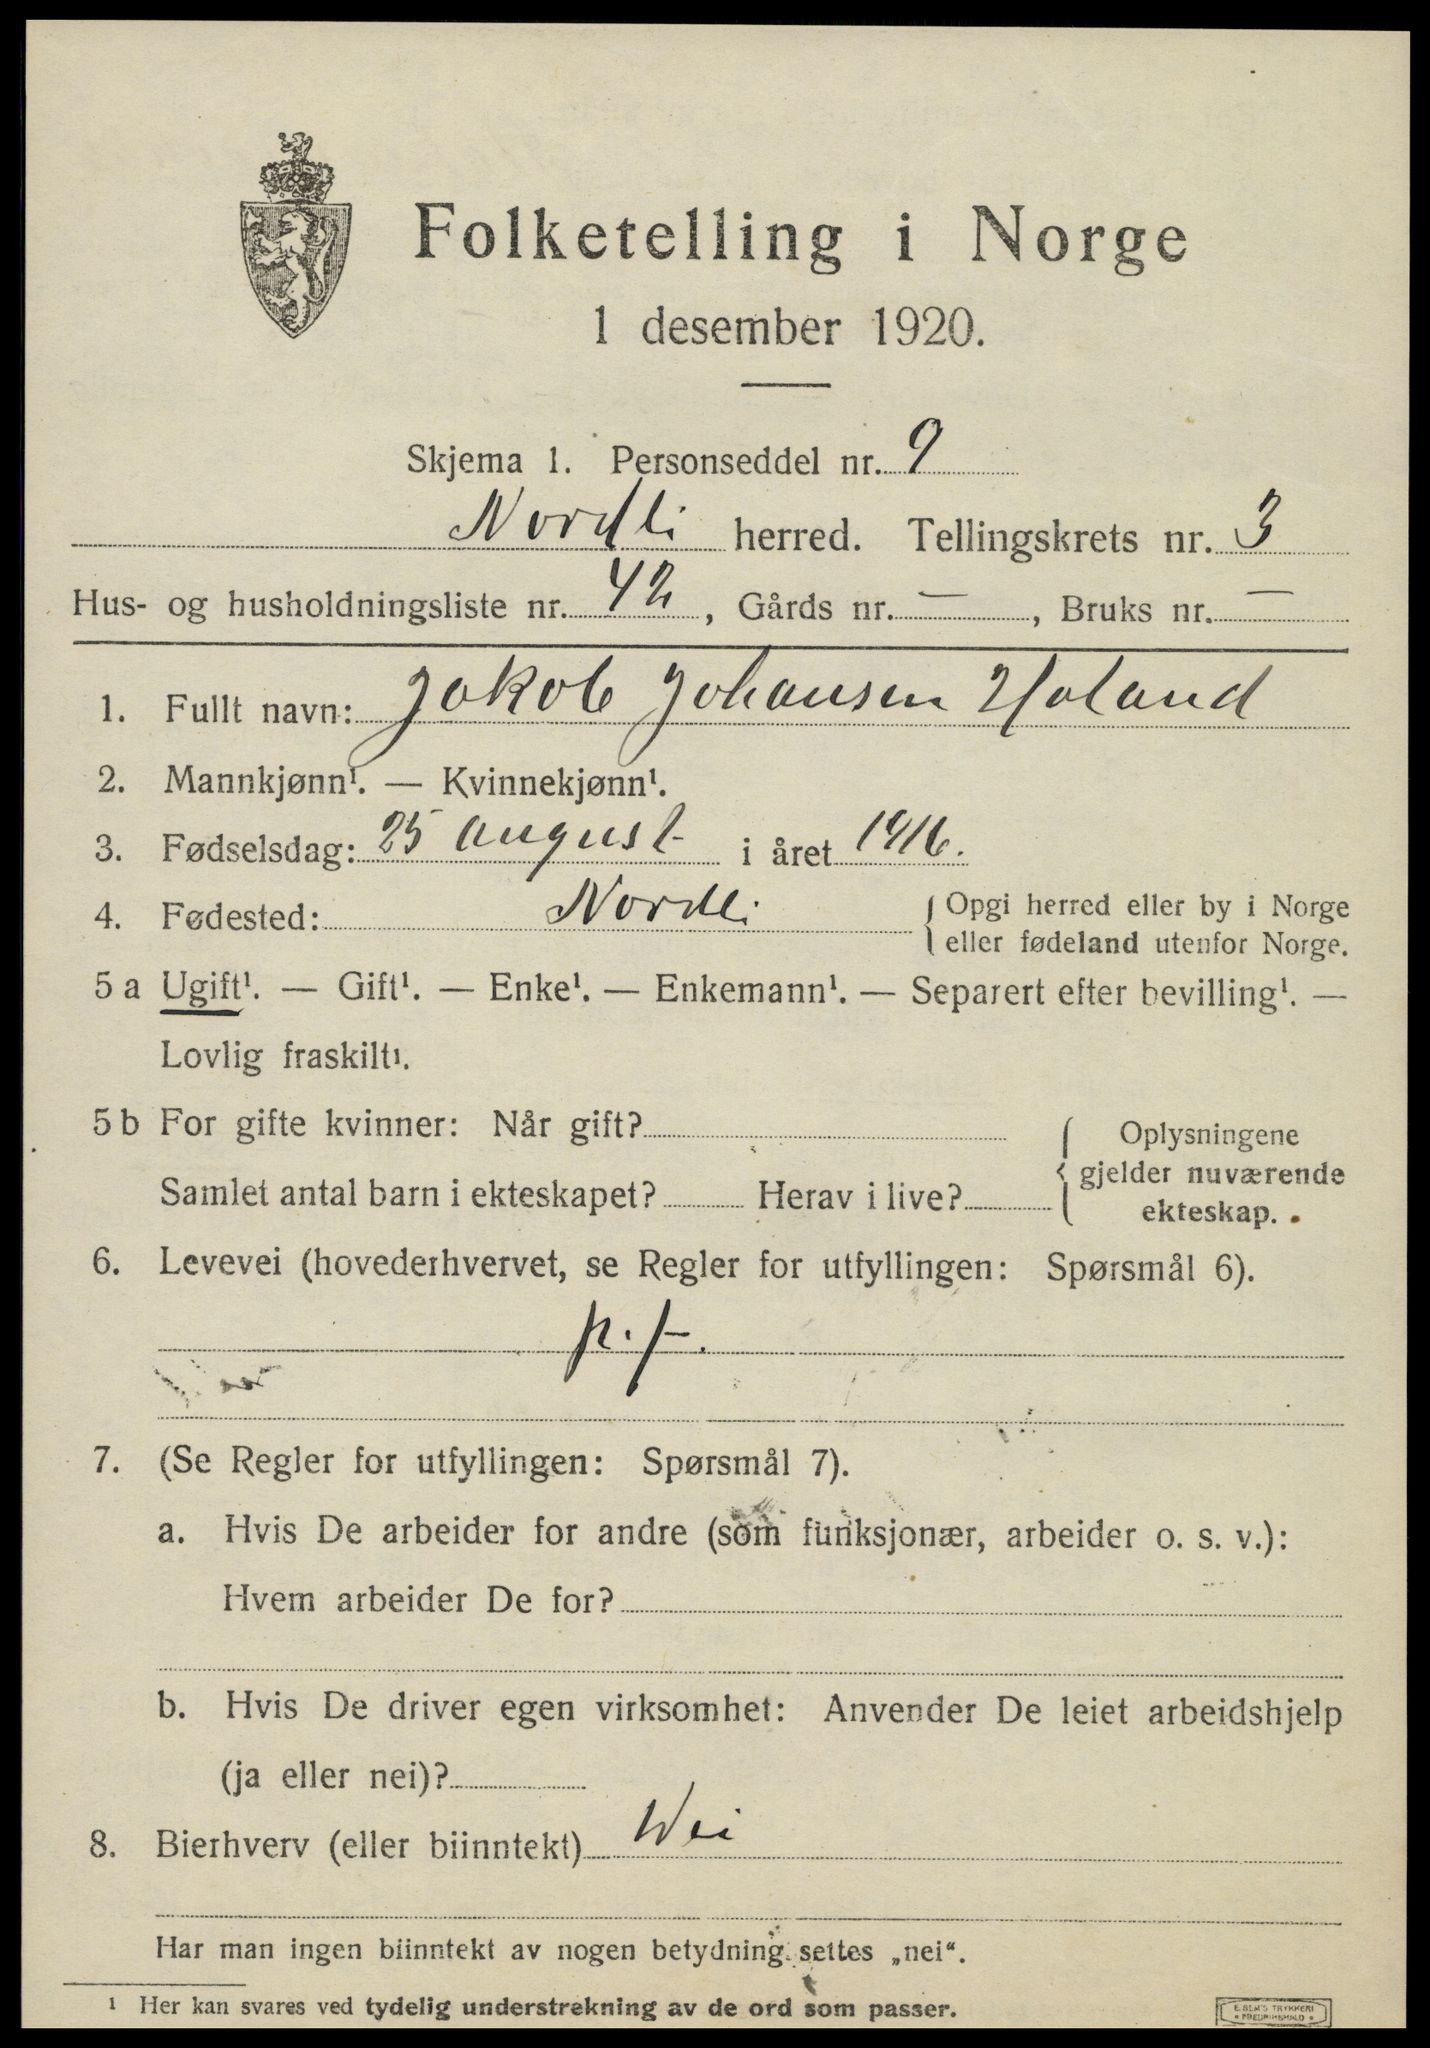 Folketelling i Norge
1 desember 1920.
Skjema 1. Personseddel nr. 9
Nordli herred. Tellingskrets nr. 3
Hus- og husholdningsliste nr. 42, Gårds nr. —, Bruks nr. —
1. Fullt navn: Jakob Johansen Holand
2. Mannkjønn¹. — Kvinnekjønn¹.
3. Fødselsdag: 25 august i året 1916.
4. Fødested: Nordli { Opgi herred eller by i Norge
eller fødeland utenfor Norge.
5 a Ugift¹. — Gift¹. — Enke¹. — Enkemann¹. — Separert efter bevilling¹. —
Lovlig fraskilt¹.
5 b For gifte kvinner: Når gift?
Samlet antal barn i ekteskapet? Herav i live?
{ Oplysningene
gjelder nuværende
ekteskap.
6. Levevei (hovederhvervet, se Regler for utfyllingen: Spørsmål 6).
p. f.
7. (Se Regler for utfyllingen: Spørsmål 7).
a. Hvis De arbeider for andre (som funksjonær, arbeider o. s. v.):
Hvem arbeider De for?
b. Hvis De driver egen virksomhet: Anvender De leiet arbeidshjelp
(ja eller nei)?
8. Bierhverv (eller biinntekt) Nei
Har man ingen biinntekt av nogen betydning settes „nei“.
¹ Her kan svares ved tydelig understrekning av de ord som passer.
E. SEM'S TRYKKERI
• FREDRIKSHALD •